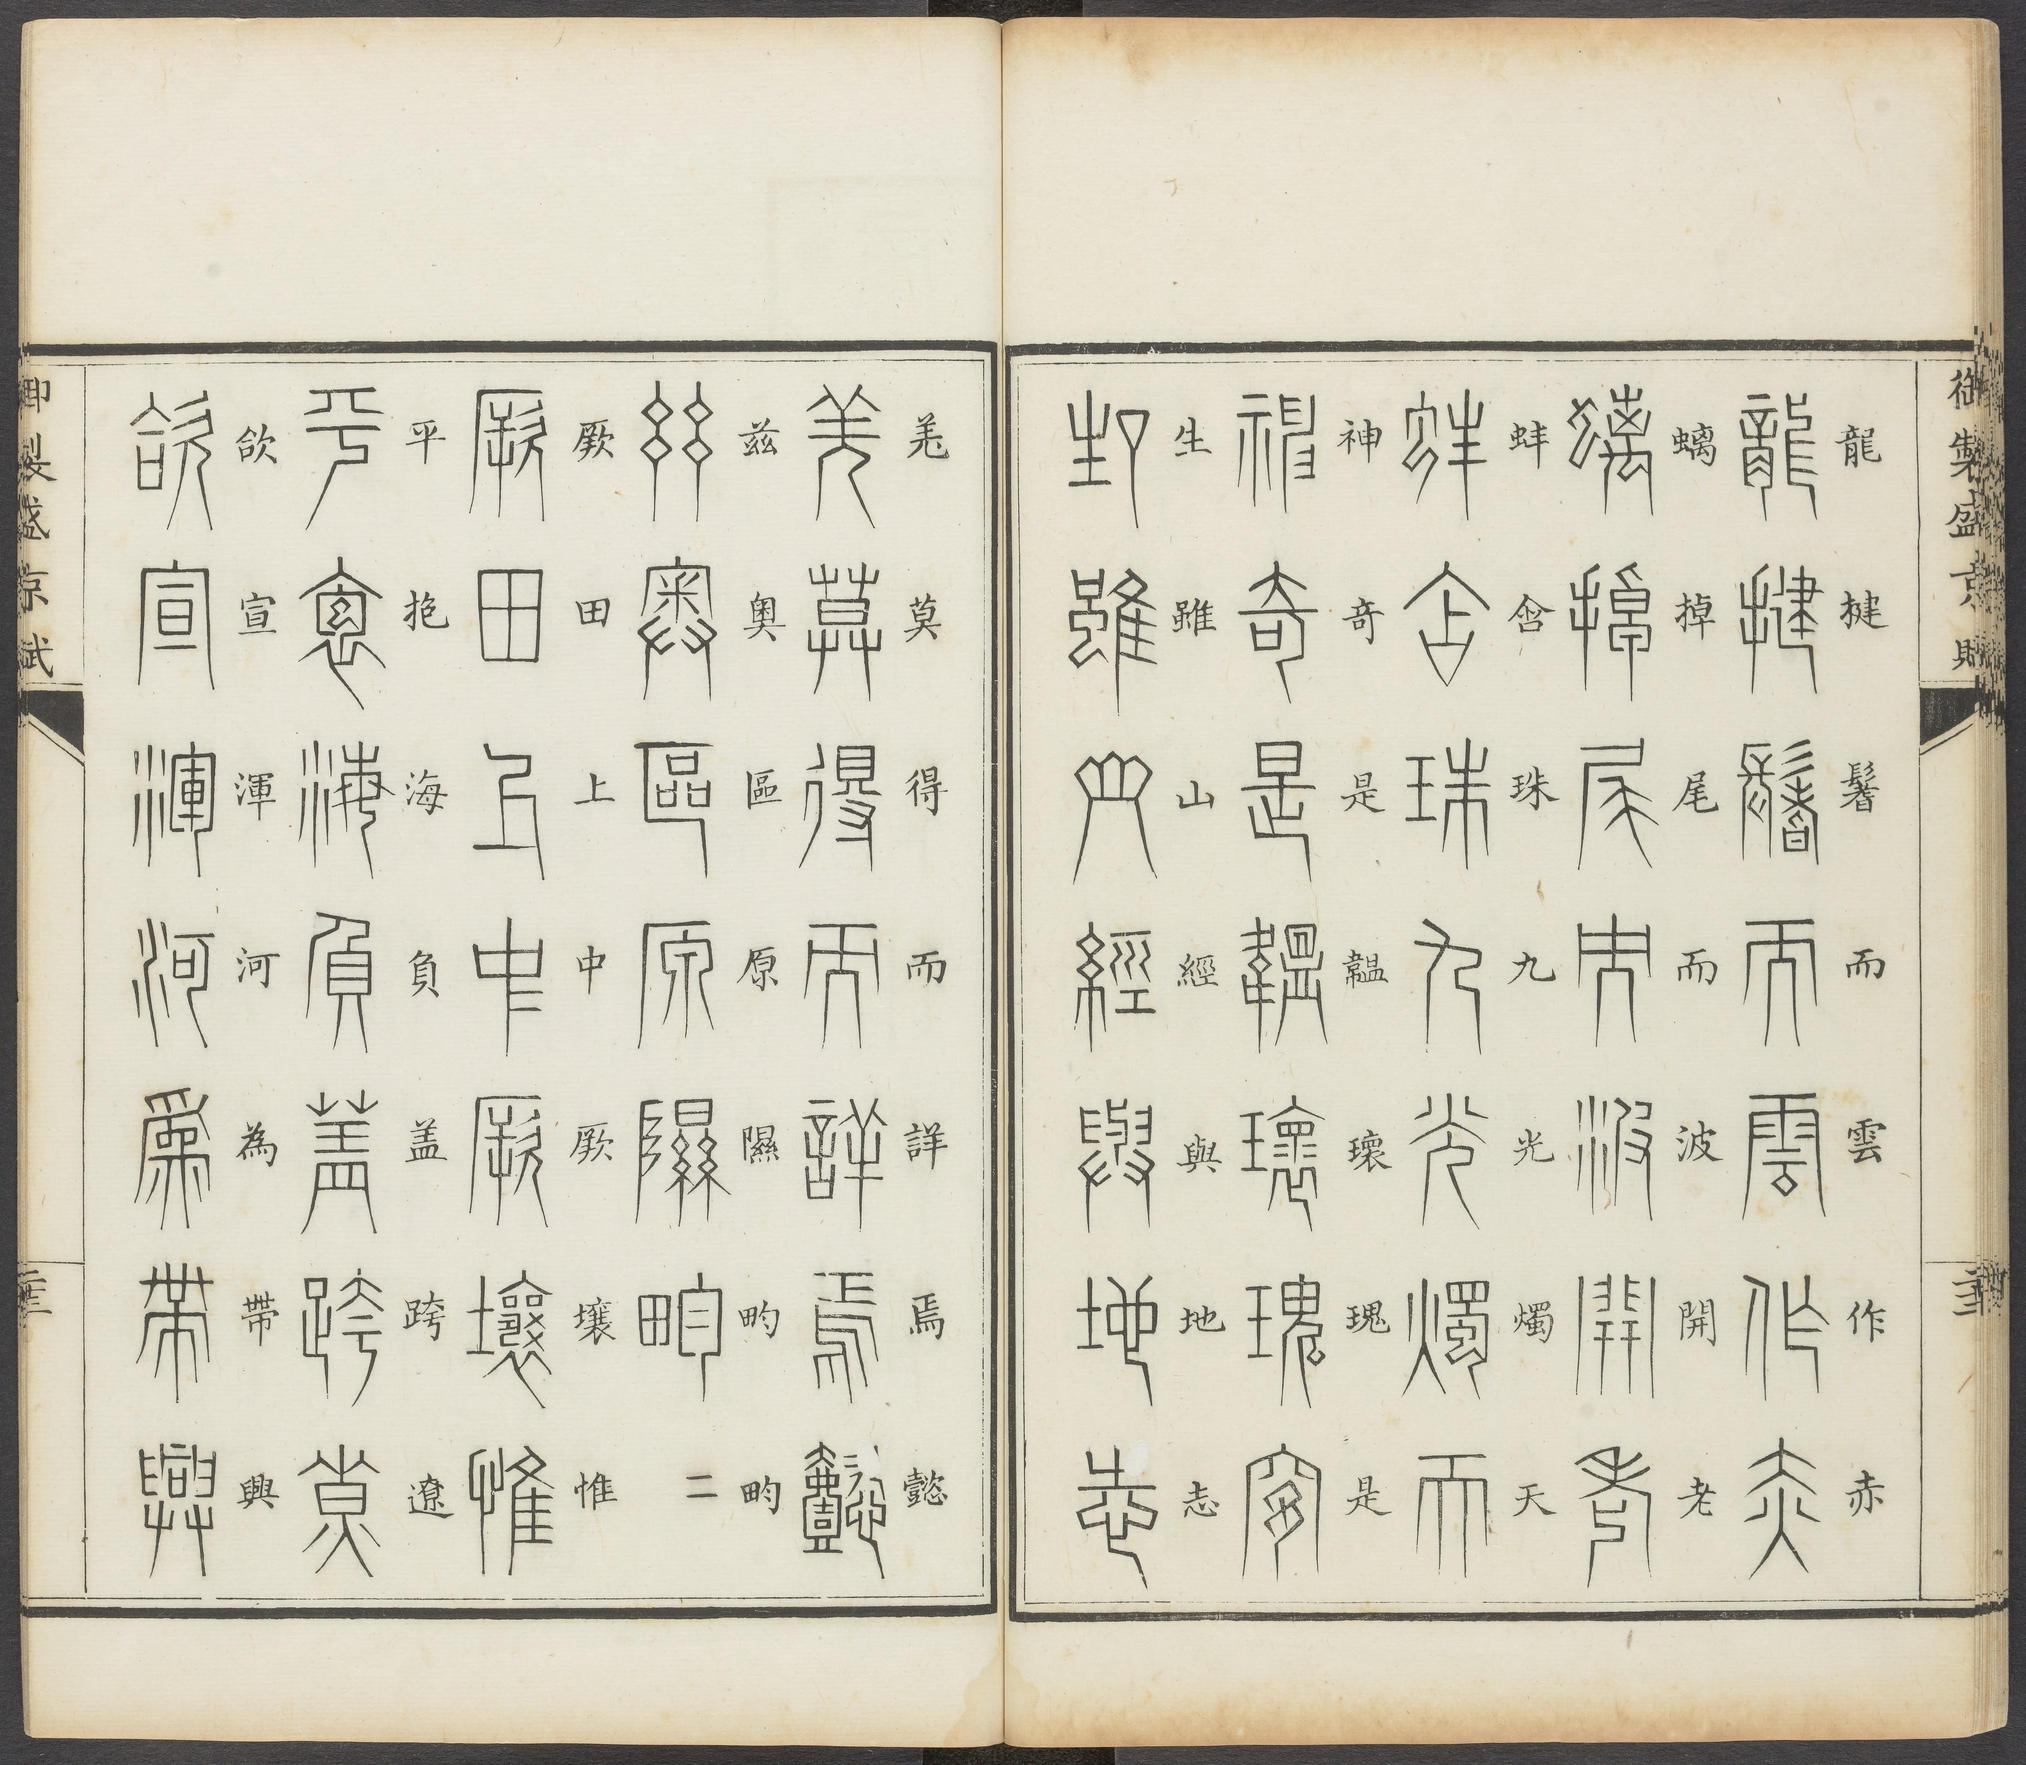 御製盛京賦
龍揵鬐而雲作赤
龍揵鬐而雲作赤
螭掉尾而波開老
螭掉尾而波開老
蚌含珠九光燭天
蚌含珠九光燭天
神奇是韞瓌瑰是
神奇是韞瓌瑰
生雖山經與地志
生雖山經與地志
羌莫得而詳焉懿
羌莫得而詳焉懿
茲奧區原隰畇畇
茲奧區原隰畇二
厥田上中厥壤惟
厥田上中厥壤惟
平抱海負盖跨遼
平抱海負盖跨遼
欱宣渾河為帶興
欱宣渾河為帶興
御製盛京賦